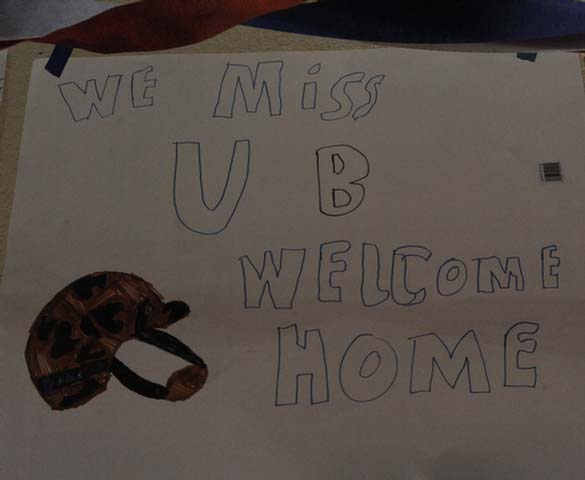 WE MiSS
U B
WELCOME
HOME